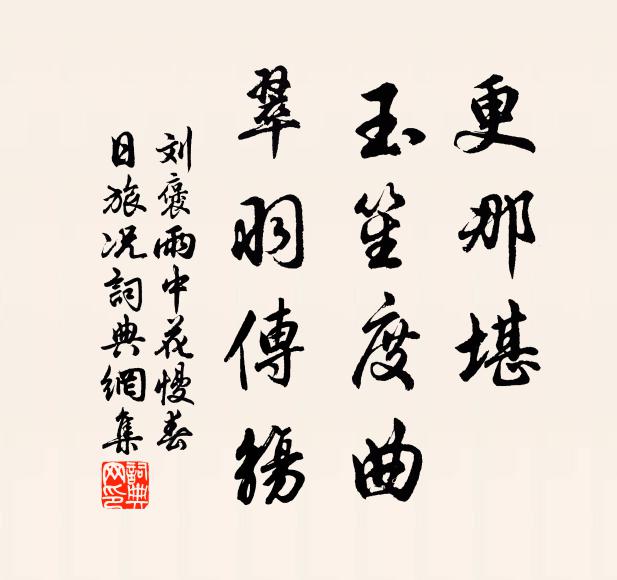 更那堪
玉笙度曲
翠羽傳觴
刘褒雨中花慢春
日旅况詞典網集
詞典网印